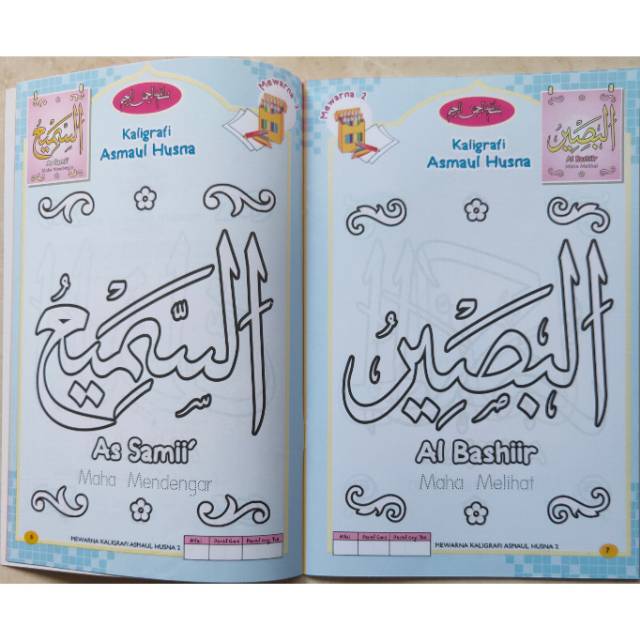 Mewarna - 1
Kaligrafi
Asmaul Husna
السَّمِيْعُ
As Samii'
Maha Mendengar
السَّمِيْعُ
As Samii'
Maha Mendengar
6
MEWARNA KALIGRAFI ASMAUL HUSNA 2
Nilai
Paraf Guru
Paraf Org. Tua
Mewarna - 2
Kaligrafi
Asmaul Husna
الْبَصِيْرُ
Al Bashiir
Maha Melihat
الْبَصِيْرُ
Al Bashiir
Maha Melihat
Nilai
Paraf Guru
Paraf Org. Tua
MEWARNA KALIGRAFI ASMAUL HUSNA 2
7